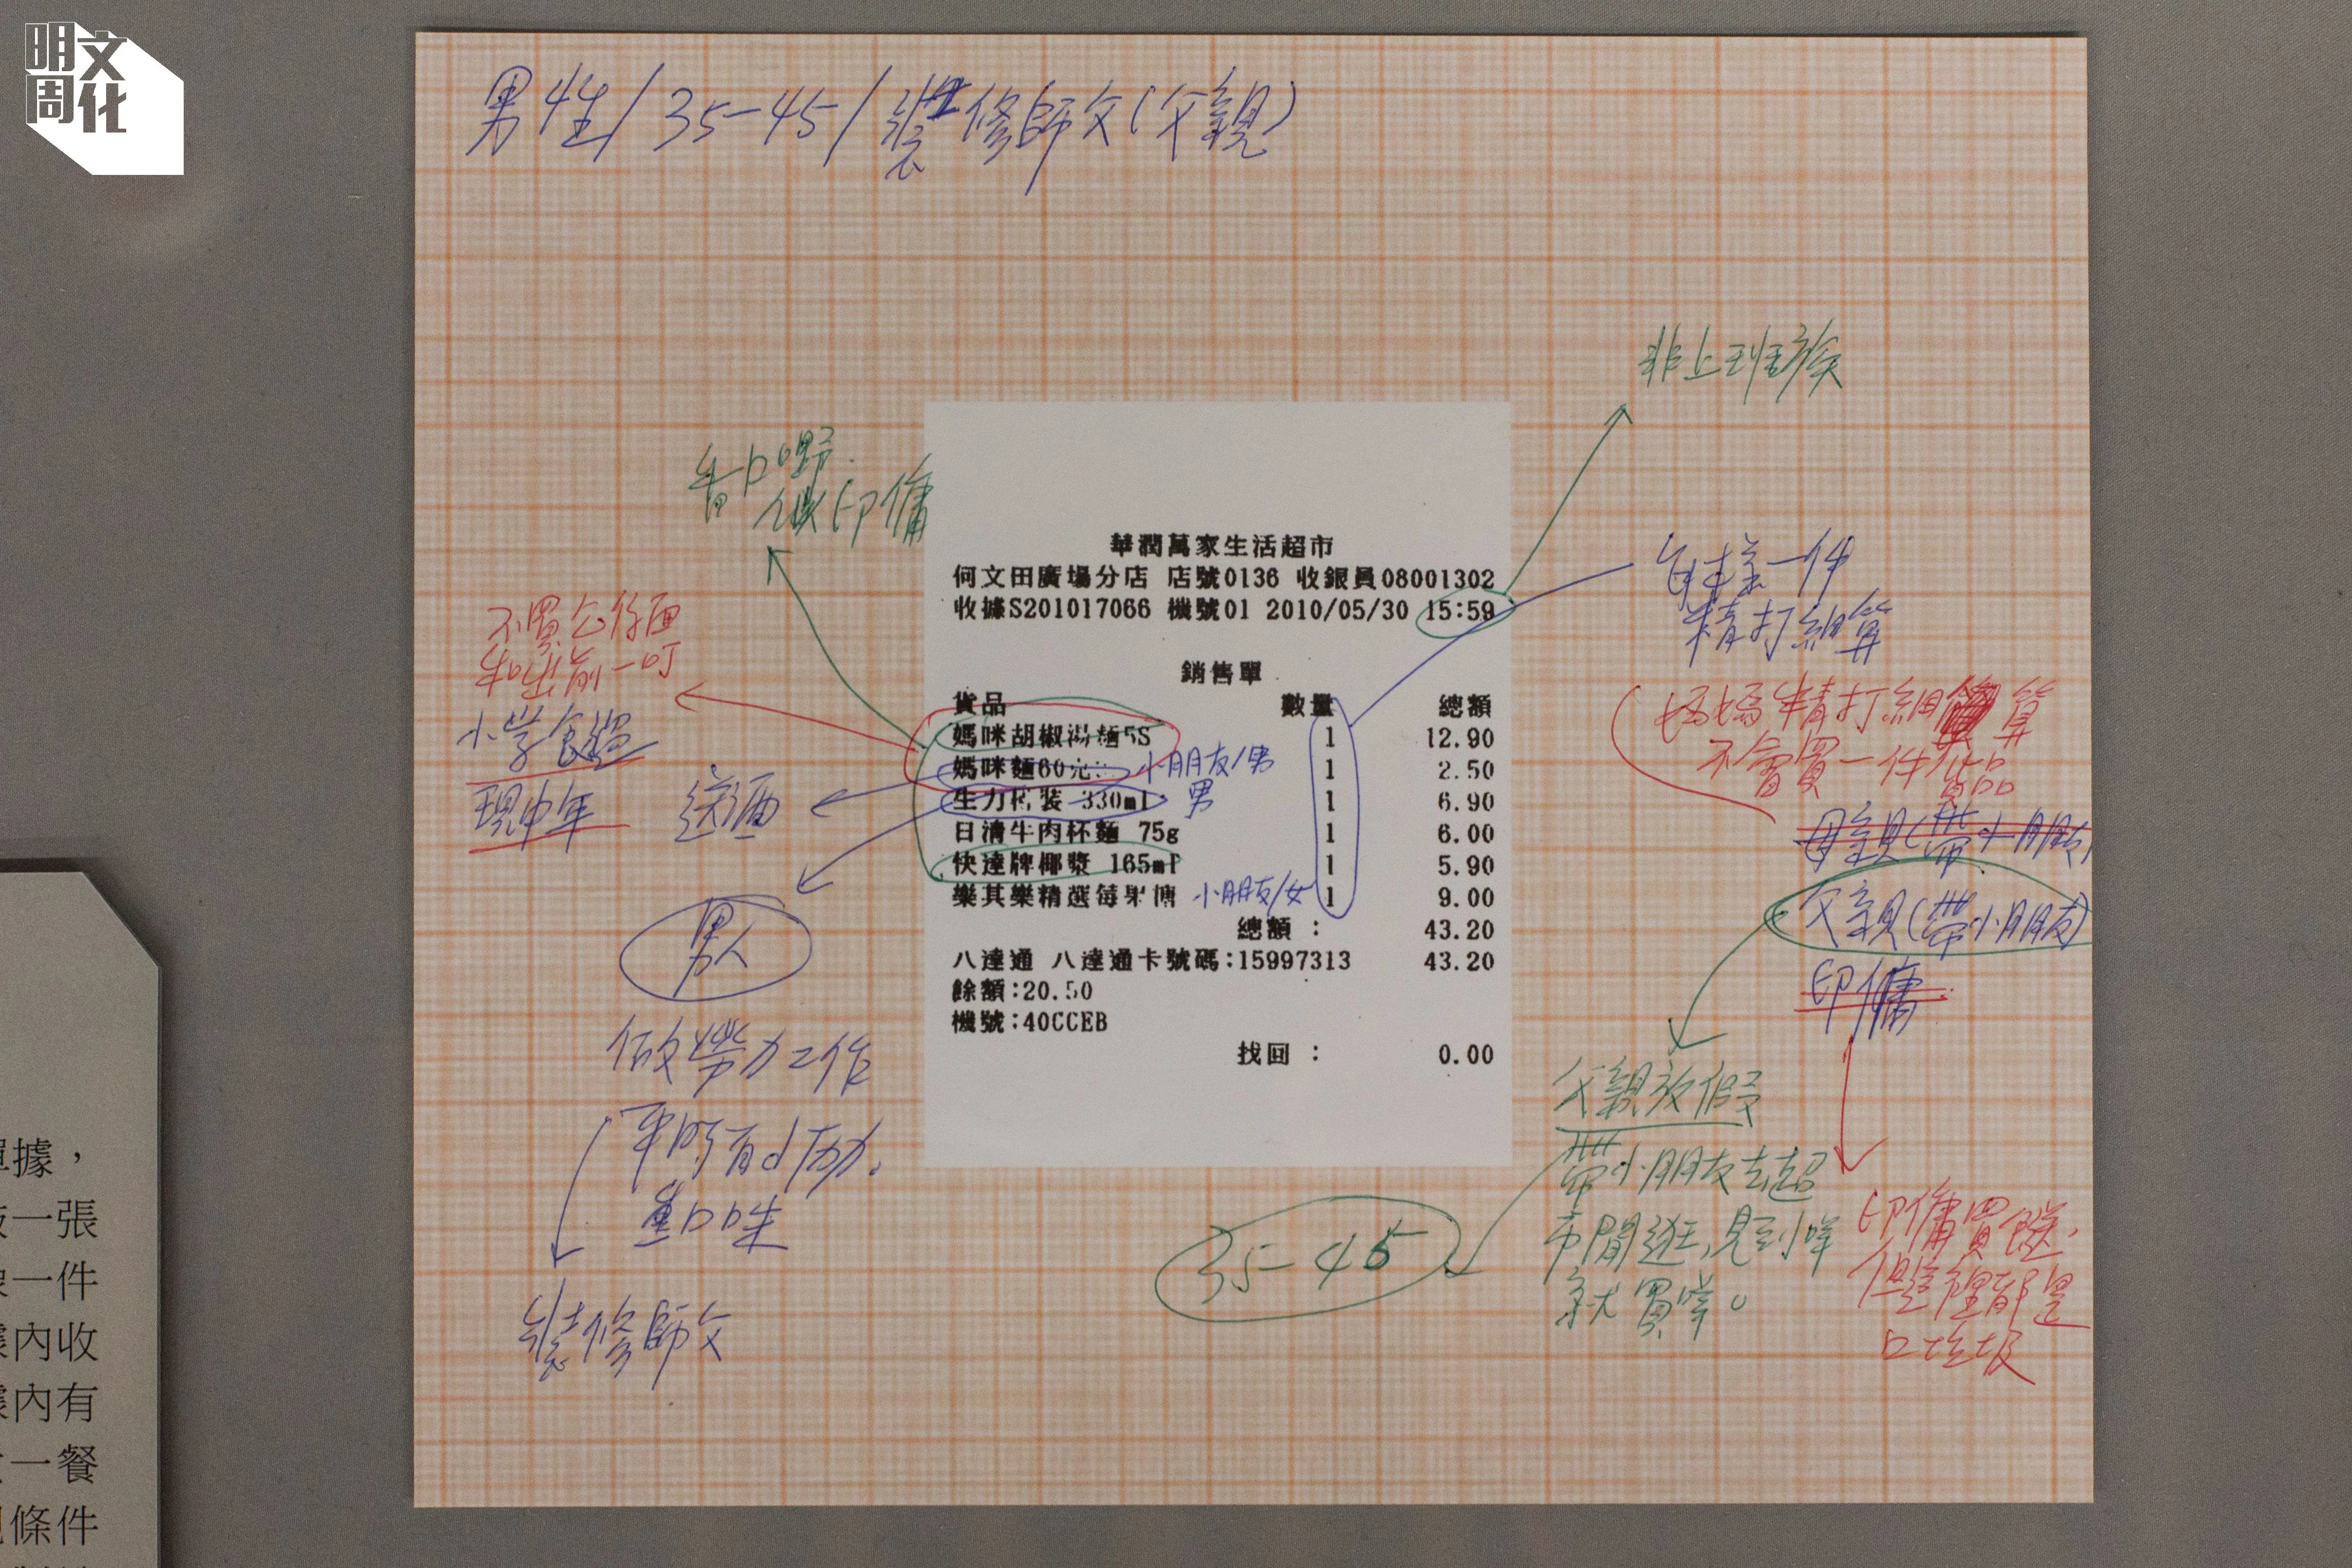 明文
周化
男性/35-45/裝修師父(父親)
非上班族
香口野.
似印傭
每樣一件
精打細算
不買公仔面
和出前一叮
小学食過
現中年
送酒
男人
做勞力工作
平時有d firm.
重口味
裝修師父
媽媽精打細算
不會買一件貨品
母親(帶小朋友)
父親(帶小朋友)
印傭
父親放假
帶小朋友去超
市閒逛,見到咩
就買咩。
35-45
印傭買餸,
但這裡都是
口垃圾
華潤萬家生活超市
何文田廣場分店 店號0136 收銀員08001302
收據S201017066 機號01 2010/05/30 15:59
銷售單
貨品 數量 總額
媽咪胡椒湯麵5S 1 12.90
媽咪麵60克 小朋友/男 1 2.50
生力樽裝 330ml 男 1 6.90
日清牛肉杯麵 75g 1 6.00
快達牌椰漿 165ml 1 5.90
樂其樂精選莓果 小朋友/女 1 9.00
總額 : 43.20
八達通 八達通卡號碼:15997313 43.20
餘額:20.50
機號:40CCEB
找回 : 0.00
單據,
一張
一件
內收
內有
一餐
條件